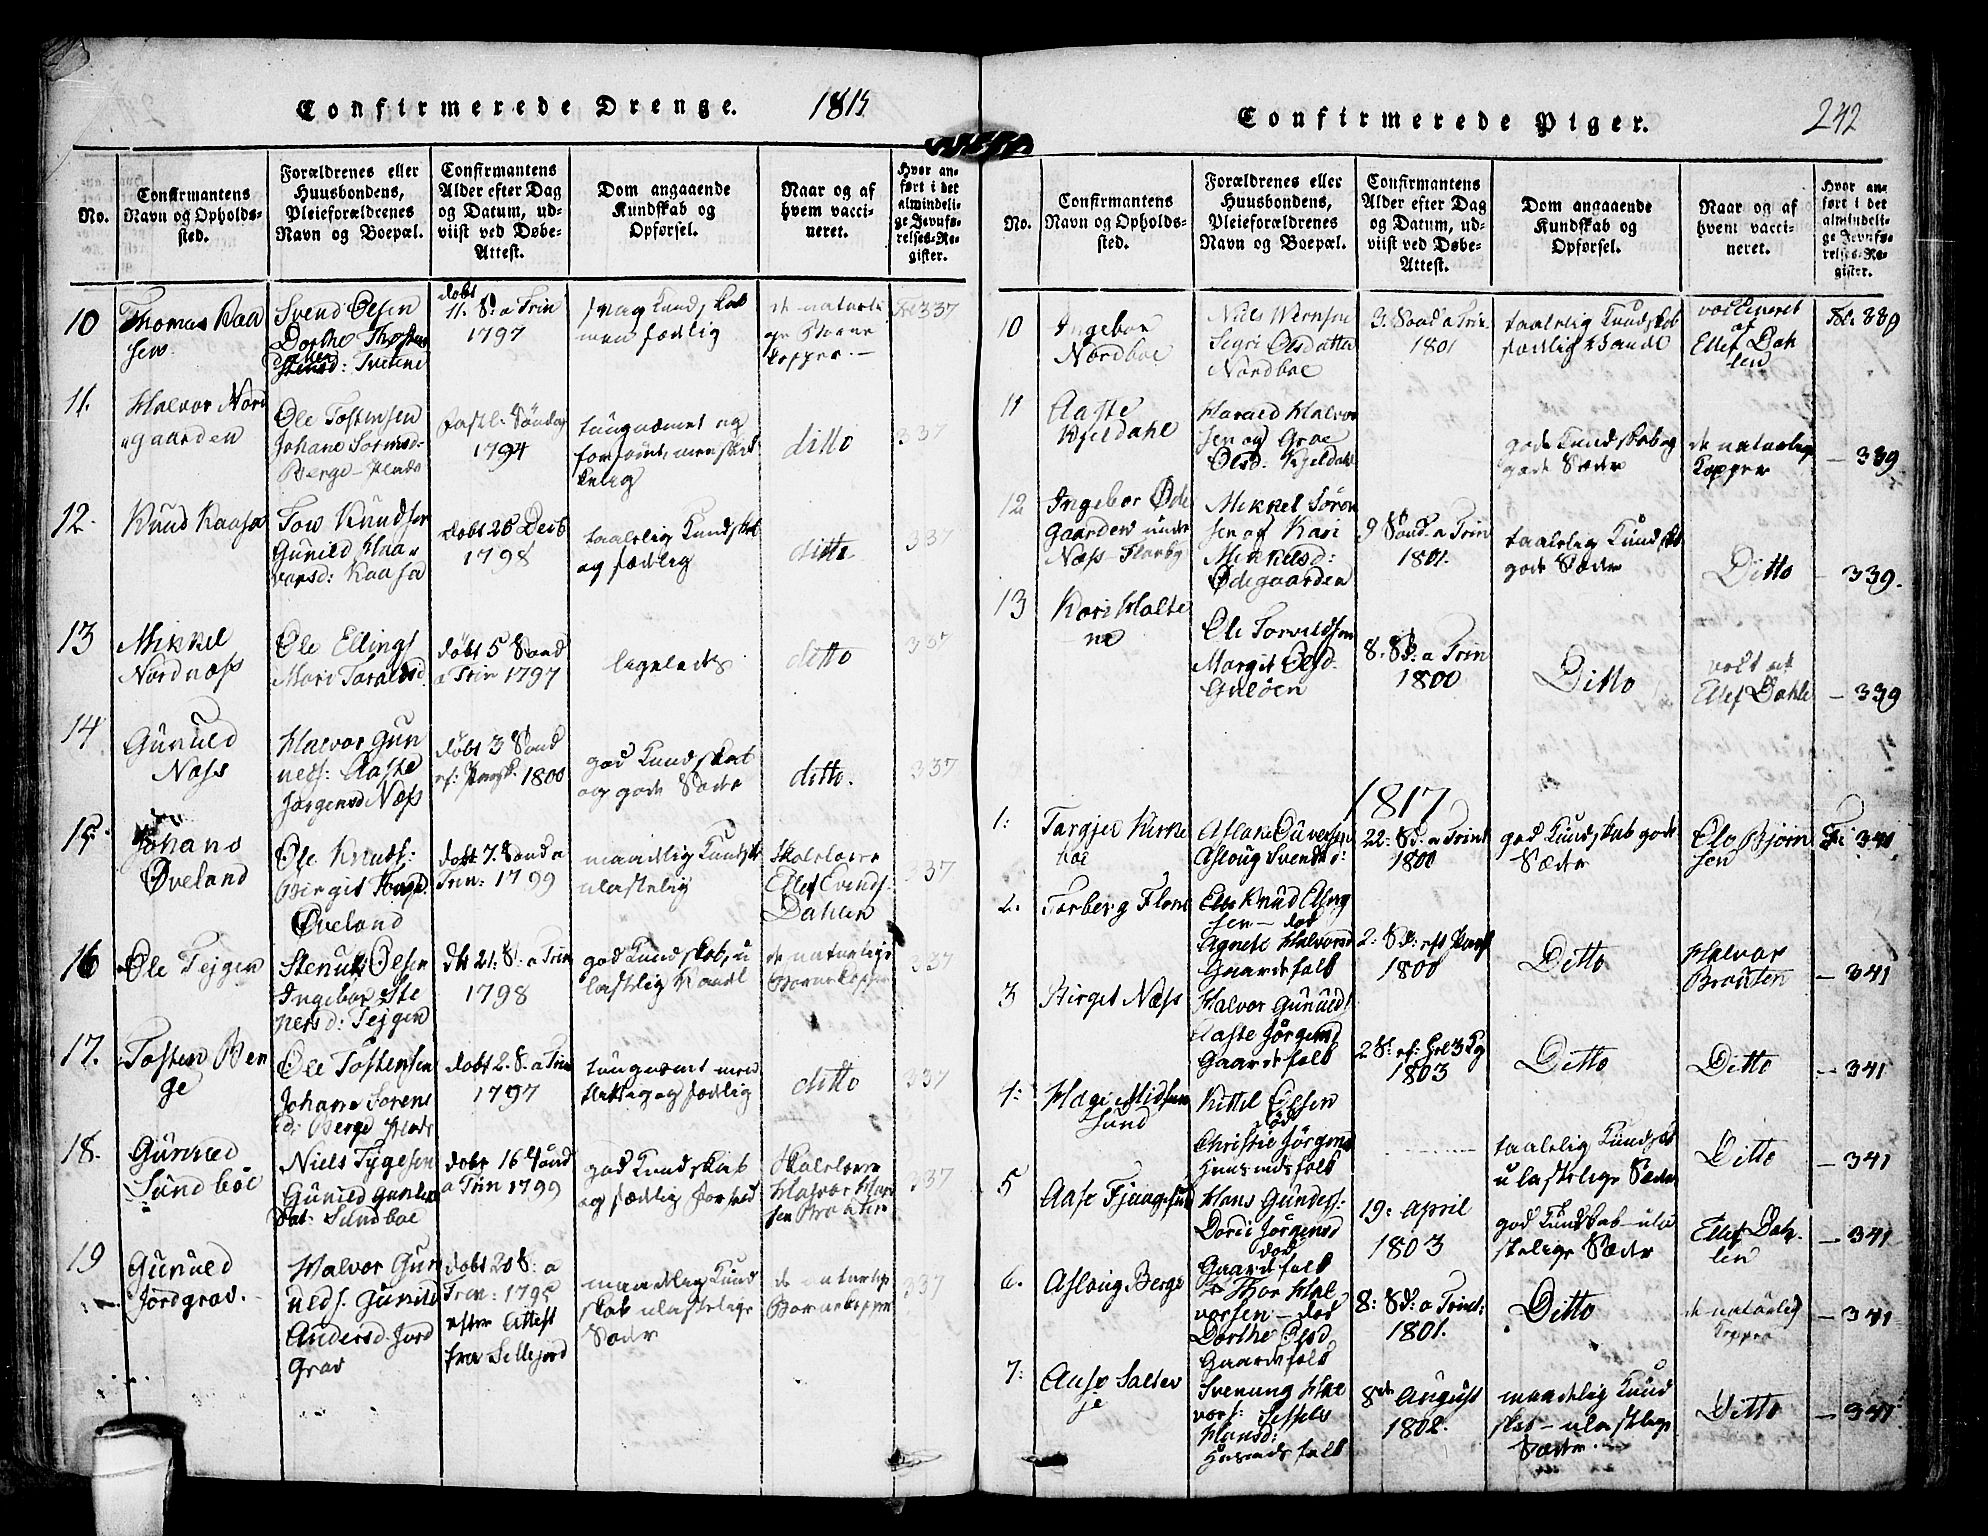 Confirmerede Drenge. 1815
No.
Confirmantens
Navn og Opholds-
sted.
Forældrenes eller
Huusbondens,
Pleieforældrenes
Navn og Boepæl.
Confirmantens
Alder efter Dag
og Datum, ud-
viist ved Døbe-
Attest.
Dom angaaende
Kundskab og
Opførsel.
Naar og af
hvem vacci-
neret.
Hvor an-
ført i det
almindeli-
ge Jevnfø-
relses-Re-
gister.
10
Thomas Kaa
sen
Svend Olsen
Dorthe
Tvetene
døbt
11. S. a Trin
1797
svag Kundskab
men sædlig
de naturli
ge Børne
kopper.
337
11.
Halvor Nord
gaarden
Ole Tostensen
Johane
Berge
Fastl: Søndag
1794
tungnæmet og
forsømt, men skik
kelig
ditto
337
12.
Knud Kaasa
Tov Knudsen
Gunild Haa
varsd: Kaasa
døbt 26 Decb
1798
taalelig Kundskab
og sædlig
ditto
337
13
Mikkel
Nordnæss
Ole Ellings
Mari Taraldsd.
døbt 5 Sønd
a Trin 1797
ligeledes
ditto
337
14
Gunuld
Næss
Halvor Gun
ueds: Aaste
Jørgensd Næss
døbt 3 Sønd
ef: Paask. 1800
god Kundskab
og gode Sæder
ditto.
337
15.
Johans
Øveland
Ole Knuds:
Birgit
Øveland
døbt 7. Sønd a
Trin: 1799
maadelig Kundsk
ulastelig
Skolelærer
Ellef Evends:
Dahlen
337
16
Ole Tejgen
Stenulf Olsen
Ingebor Ste
nersd: Tejgen
dbt 21. S. a Trin
1798
god Kundskab, u
lastelig Vandel
de naturlige
Børnekopper
337
17.
Tosten Ber
ge
Ole Tostensen
Johane Sørens
d: Berge
døbt 2. S. a Trin
1797
tungnæmt men
flittig og sædelig
ditto
337
18.
Gunued
Sundboe
Niels Tygesen
Gunild
dat: Sundboe
døbt 16 Sønd
a Trin 1799
god Kundskab
og sædlig Forhold
Skolelærer
Halvor Han
sen Braaten
337
19
Gunued
Jordgrav.
Halvor Gun
ueds. Gunild
Andersd. Jord
grav
døbt 20 S: a
Trin: 1795
efter Attest
fra Sillejord
maadelig Kund
skab ulastelige
Sæder
de naturlige
Børnekopper
337
Confirmerede Piger. 242
No.
Confirmantens
Navn og Opholds-
sted.
Forældrenes eller
Huusbondens,
Pleieforældrenes
Navn og Boepæl.
Confirmantens
Alder efter Dag
og Datum, ud-
viist ved Døbe-
Attest.
Dom angaaende
Kundskab og
Opførsel.
Naar og af
hvem vacci-
neret.
Hvor an-
ført i det
almindeli-
ge Jevnfø-
relses-Re-
gister.
10
Ingebor
Nordboe
Niels
Segri Olsdatter
Nordboe
3. Sønd a Trin.
1801
taalelig Kundskab
sædlig Vandel
vaccineret
af
Ellef Dah
len
339
11
Aaste
Kjeldahl
Harald Halvor
sen og Groe
Olsd. Kjeldahl
gode Kundskab og
gode Sæder
de naturlige
Kopper
– 339
12
Ingebor Øde
gaarden under
Næss Flaaby
Mikkel Søren
sen og Kari
Mikkelsd:
Ødegaarden
9 Sønd. a Trin
1801.
taalelig Kundskb
gode Sæder
Ditto
– 339.
13
Kari Halte
ne
Ole Torvildsen
Margit Olsd.
Guløen
8: Sd: a Trin
1800
Ditto
Ellef Dahle
– 339
1817
1:
Targjer Kirke
boe
Aslak
Aslaug Svends d:
22: Sd: a Trinit
1800
god Kundskab gode
Sæder
Ole Bjørn
sen
341
2.
Torberg Flom
Knud Elling
sen – død
Agnete Halvorsd
Gaardefolk
2: Sd: eft Paask
1800
Ditto
Halvor
Braaten
– 341
3
Birget Næss
Halvor Gunueds
Aaste Jørgensd
Gaardefolk
2 S: ef: Hel 3 Kg
1803
Ditto
Ditto
– 341
4:
Hæge Midsem
sund
Kittil Olsen
død
Christie Jørgensd
Huusmdsfolk
taalelig Kundsk
ulastelige Sæder
Ditto
– 341
5
Aase Fjaagesund
Hans Gunders:
Dorei Jørgensd
død
Gaardefolk
19: April
1803
god Kundskab – ula
stelige Sæder
Ellef Dah
len
– 341
6.
Aslaug Berge
Thor Hal
vorsen – død
Dorthe Olsd
Gaardefolk
8: Sd: a Trinit:
1801.
Ditto
de naturlig
Kopper
– 341
7:
Aase Salter
je
Svenung Hal
vors:
Hansd:
Huusmdsfolk
8de August
1802.
maadelig Kund
skab – ulastelige
Sæder.
Ditto
– 341